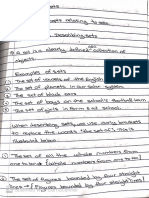 sets
concepts relating to sets
Describing sets
A set is a clearly defined collection of
objects.
Examples of sets
① The set of vowels of the English
② The set of planets in our solar system
③ The set of black cars
④ The set of boys on the school's football
⑤ The set of girls in form 4 of school.
When describing sets, we use curly brackets
to replace the words "the set of". This is
illustrated below
① The set of all the whole numbers from
one to ten = { whole numbers from one to ten }
② The set of figures bounded by four straight
lines = { figures bounded by four straight lines }